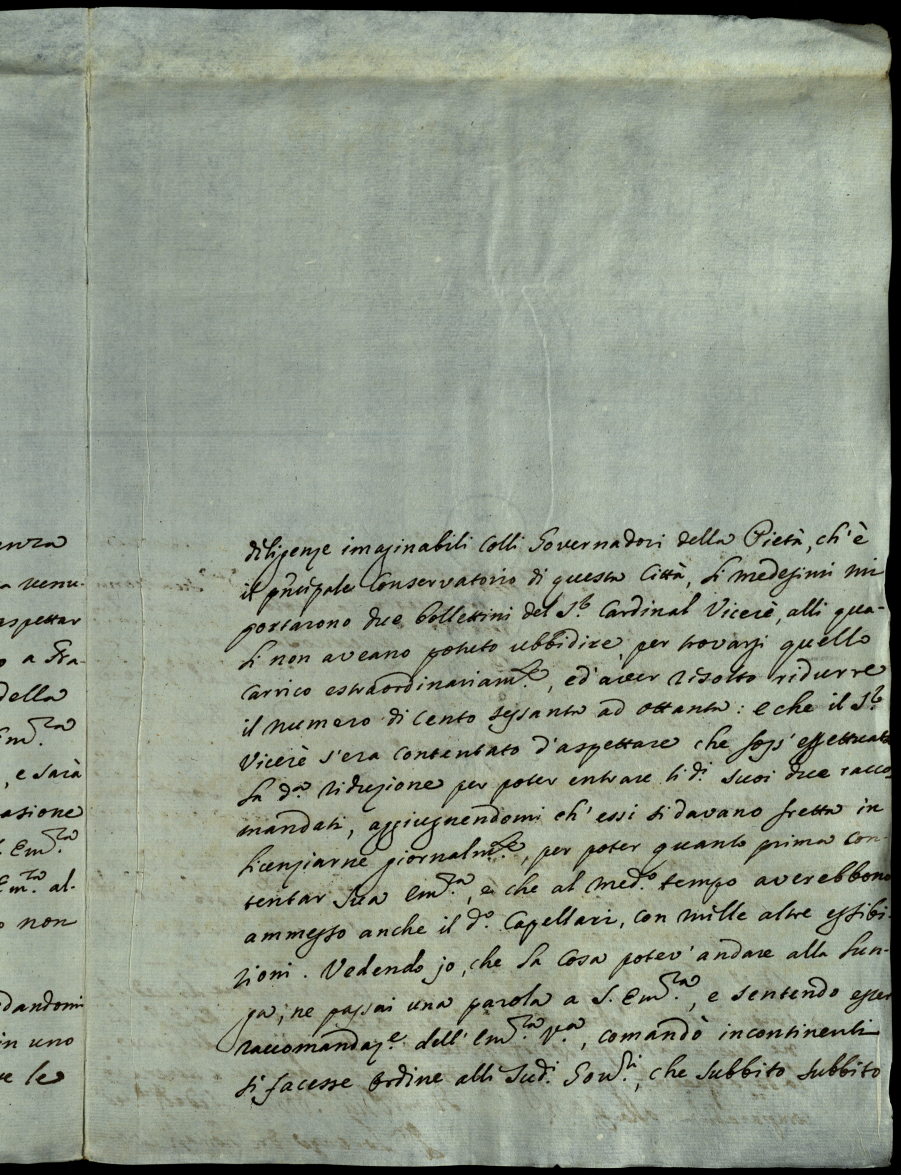 enza
a venu-
aspettar
o a Fra-
della
Em.za
, e sarà
asione
Em.za
Em.za al-
o non
dandomi
in uno
ue le
diligenze imaginabili colli Governadori della Pietà, ch'è
il prncipale Conservatorio di questa Città, li medesimi mi
portarono due bollettini del S.r Cardinal Vicerè, alli qua-
li non aveano potuto ubbidire, per trovarsi quello
carrico estraordinariam.te, ed aver risolto ridurre
il numero di cento sessanta ad ottanta: e che il S.r
Vicerè s'era contentato d'aspettare che foss' effettuata
la d.a riduzione per poter entrare li d.i suoi due racco-
mandati, aggiugnendomi ch'essi si davano fretta in
licenziarne giornalm.te, per poter quanto prima con-
tentar Sua Em.za, e che al med.o tempo averebbono
ammesso anche il d.o Capellari, con mille altre essibi-
zioni. Vedendo jo, che la cosa poter' andare alla lun-
ga, ne passai una parola a S. Em.za, e sentendo esser
raccomandaz.e dell' Em.za V.a, comandò incontinenti
si facesse ordine alli sud.i Gov.ri, che subbito subbito